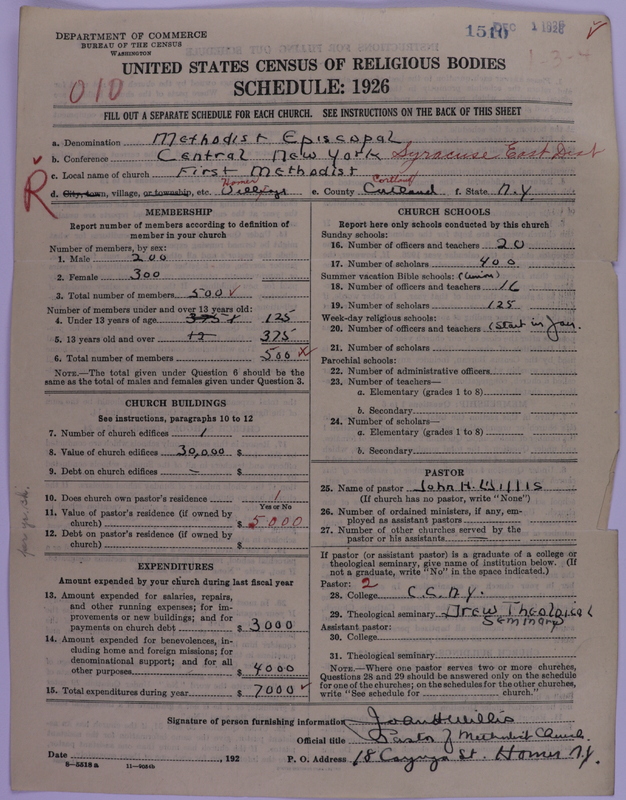 DEPARTMENT OF COMMERCE
BUREAU OF THE CENSUS
WASHINGTON
1510 DEC 1 1926
1-3-4
UNITED STATES CENSUS OF RELIGIOUS BODIES
SCHEDULE: 1926
010
FILL OUT A SEPARATE SCHEDULE FOR EACH CHURCH. SEE INSTRUCTIONS ON THE BACK OF THIS SHEET
a. Denomination Methodist Episcopal
b. Conference Central New York Syracuse East Dist
c. Local name of church First Methodist
R
d. City, town, village, or township, etc. Homer Village e. County Cortland Cortland f. State N.Y.
MEMBERSHIP
Report number of members according to definition of
member in your church
Number of members, by sex:
1. Male 200
2. Female 300
3. Total number of members 500
Number of members under and over 13 years old:
4. Under 13 years of age 375 125
5. 13 years old and over 375
6. Total number of members 500
NOTE.—The total given under Question 6 should be
same as the total of males and females given under Question 3.
CHURCH BUILDINGS
See instructions, paragraphs 10 to 12
7. Number of church edifices 1
8. Value of church edifices 30,000 $
9. Debt on church edifices – $
10. Does church own pastor's residence 1
Yes or No
11. Value of pastor's residence (if owned by
church) $ 5000
12. Debt on pastor's residence (if owned by
church) $
EXPENDITURES
Amount expended by your church during last fiscal year
13. Amount expended for salaries, repairs,
and other running expenses; for im-
provements or new buildings; and for
payments on church debt $ 3000
14. Amount expended for benevolences, in-
cluding home and foreign missions; for
denominational support; and for all
other purposes $ 4000
15. Total expenditures during year $ 7000
CHURCH SCHOOLS
Report here only schools conducted by this church
Sunday schools:
16. Number of officers and teachers 20
17. Number of scholars 400
Summer vacation Bible schools: (Union)
18. Number of officers and teachers 16
19. Number of scholars 125
Week-day religious schools:
20. Number of officers and teachers (Start in Jan.
21. Number of scholars
Parochial schools:
22. Number of administrative officers
23. Number of teachers—
a. Elementary (grades 1 to 8)
b. Secondary
24. Number of scholars—
a. Elementary (grades 1 to 8)
b. Secondary
PASTOR
25. Name of pastor John H. Willis
(If church has no pastor, write "None")
26. Number of ordained ministers, if any, em-
ployed as assistant pastors
27. Number of other churches served by the
pastor or his assistants
If pastor (or assistant pastor) is a graduate of a college or
theological seminary, give name of institution below. (If
not a graduate, write "No" in the space indicated.)
Pastor: 2
28. College C.C.N.Y.
29. Theological seminary Drew Theological
Seminary
Assistant pastor:
30. College
31. Theological seminary
NOTE.—Where one pastor serves two or more churches,
Questions 28 and 29 should be answered only on the schedule
for one of the churches; on the schedules for the other churches,
write "See schedule for church."
Signature of person furnishing information John H Willis
Official title Pastor of Methodist Church
Date , 192 P. O. Address 18 Cayuga St. Homer N.Y.
8—5518 a 11—9054b